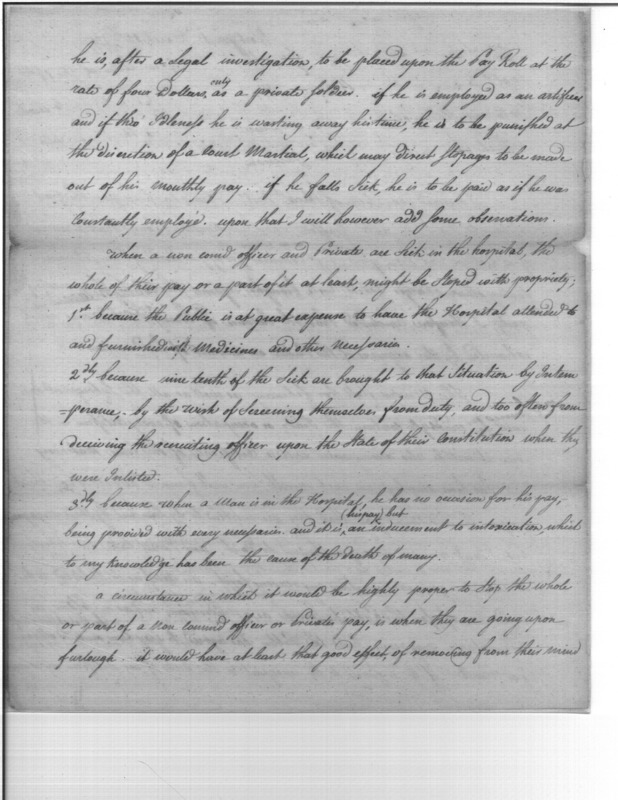 he is, after a Legal investigation, to be placed upon the Pay Roll at the
rate of four Dollars, only as a private soldier. if he is employed as an artificer
and if thro' Idleness he is wasting away his time, he is to be punished at
the discretion of a Court Martial, which may direct Stopages to be made
out of his monthly pay. if he falls Sick, he is to be paid as if he was
Constantly employe'd. upon that I will however add some observations.
when a non comd officer and Private are Sick in the hospital, the
whole of their pay or a part of it at least, might be Stoped with propriety;
1st because the Public is at great expense to have the Hospital attended to
and furnished with Medicines and other necessaries.
2dly because nine tenth of the Sick are brought to that Situation by Intem
-perance, by the wish of Screening themselves from duty, and too often from
deceiving the recruiting officer upon the State of their Constitution when they
were Inlisted.
3dly because when a Man is in the Hospital, he has no occasion for his pay,
being provided with every necessaries. and it is, (his pay) but an inducement to intoxication, which
to my Knowledge has been the cause of the death of many.
a circumstance in which it would be highly proper to Stop the whole
or part of a Non commd officer or Privates pay, is when they are going upon
furlough. it would have at least that good effect, of removing from their mind